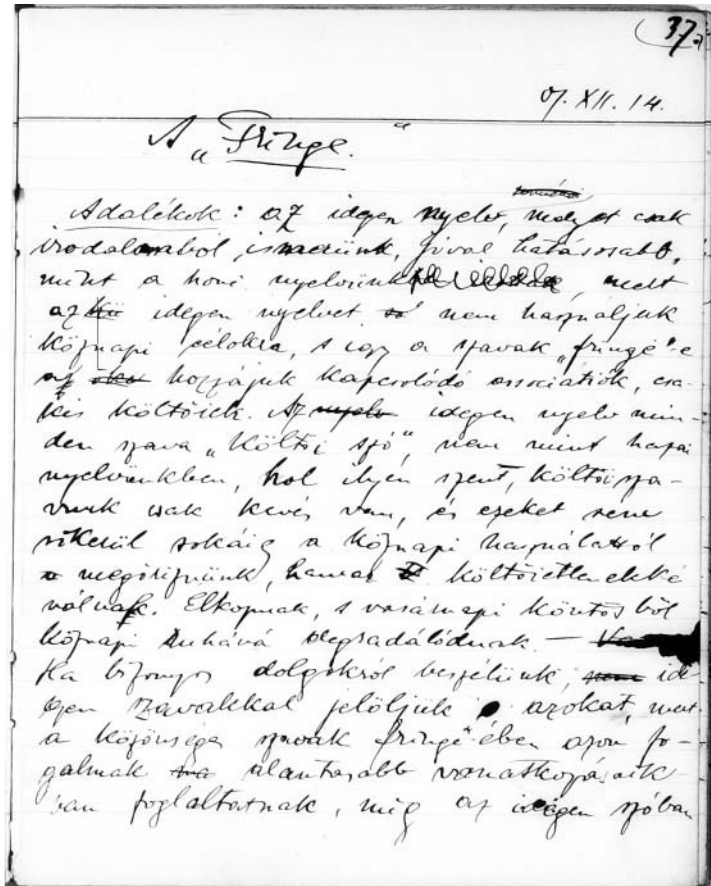 37.
07. XII. 14.
A „Fringe."
Adalékok: az idegen nyelv, melyet csak
irodalomból ismerünk, jóval hatásosabb,
mint a honi nyelvünk, mert
az idegen nyelvet nem használjuk
köznapi célokra, s így a szavak „fringe"-e
az hozzájuk kapcsolódó associátiók, csa-
kis költőiek. Az idegen nyelv min-
den szava „költői szó", nem mint hazai
nyelvünkben, hol ilyen szent, költői sza-
vunk csak kevés van, és ezeket sem
sikerül sokáig a köznapi használattól
megőriznünk, hamar költőietlenekké
válnak. Elkopnak, s vasárnapi köntösből
köznapi ruhává degradálódnak —
Ha bizonyos dolgokról beszélünk, ide-
gen szavakkal jelöljük azokat, mert
a közönséges szavak fringe-ében azon fo-
galmak alantasabb vonatkozásaik
van foglaltatnak, míg az idegen szóban